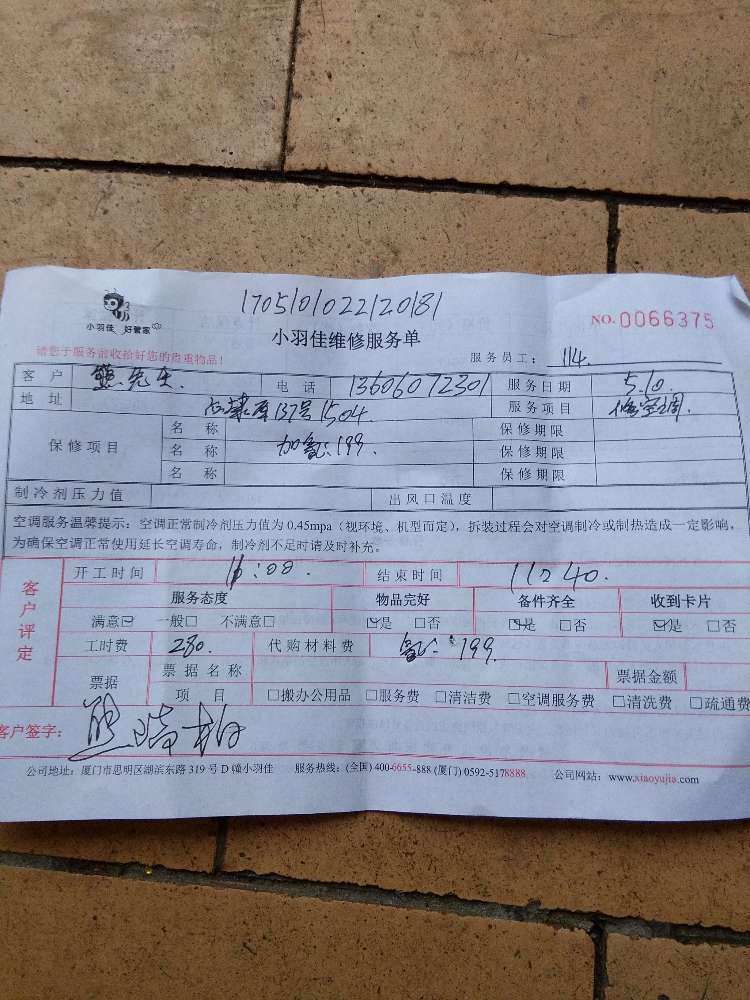 170510102212018
小羽佳 好管家
小羽佳维修服务单
NO.0066375
请您于服务前收拾好您的贵重物品!
服务员工: 114.
客户 熊先生 电话 13606072301 服务日期 5.10.
地址 137号1504 服务项目 修空调.
保修项目 名称 加氟:199. 保修期限
名称 保修期限
名称 保修期限
制冷剂压力值 出风口温度
空调服务温馨提示:空调正常制冷剂压力值为0.45mpa(视环境、机型而定),拆装过程会对空调制冷或制热造成一定影响,
为确保空调正常使用延长空调寿命,制冷剂不足时请及时补充。
客户评定
开工时间 11:00. 结束时间 11:40.
服务态度 物品完好 备件齐全 收到卡片
满意☑ 一般□ 不满意□ ☑是 □否 ☑是 □否 ☑是 □否
工时费 280. 代购材料费 氟:199.
票据 票据名称 票据金额
项目 □搬办公用品 □服务费 □清洁费 □空调服务费 □清洗费 □疏通费
客户签字: 熊
公司地址:厦门市思明区湖滨东路319号D幢小羽佳 服务热线:(全国)400-6655-888(厦门)0592-5178888 公司网站:www.xiaoyujia.com